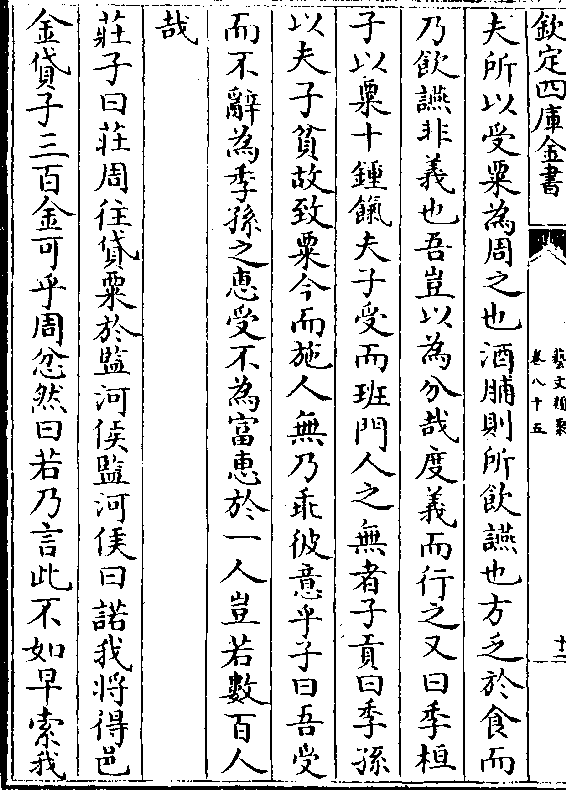 欽定四庫全書
藝文類聚
卷八十五
十二
夫所以受粟為周之也酒脯則所飲讌也方乏於食而
乃飲讌非義也吾豈以為分哉度義而行之又曰季桓
子以粟十鍾餼夫子受而班門人之無者子貢曰季孫
以夫子貧故致粟今而施人無乃乖彼意乎子曰吾受
而不辭為季孫之惠受不為富惠於一人豈若數百人
哉
莊子曰莊周往貸粟於監河侯監河侯曰諾我將得邑
金貸子三百金可乎周忿然曰若乃言此不如早索我